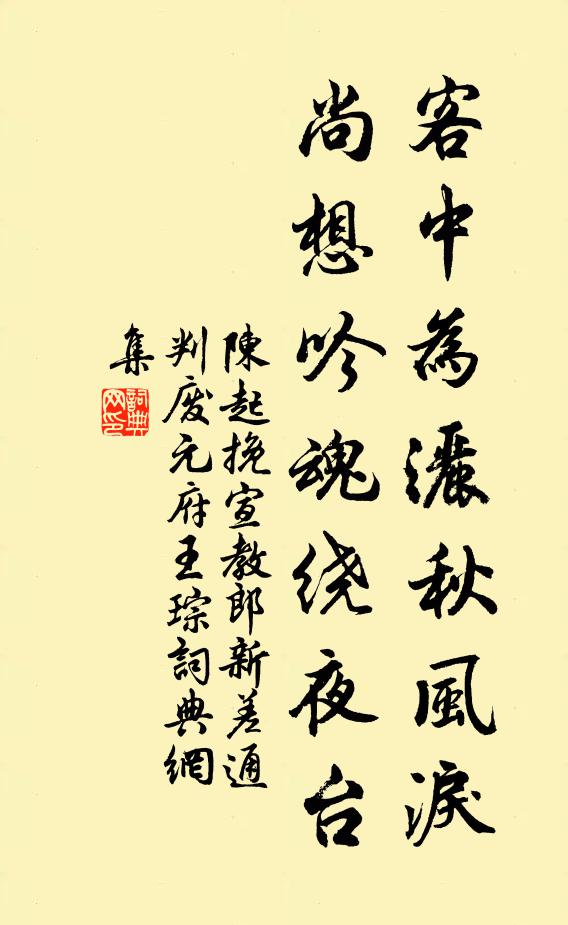 客中為灑秋風淚
尚想吟魂绕夜台
陳起挽宣教郎新差通
判废元府王琮詞典網
集
詞典
网印